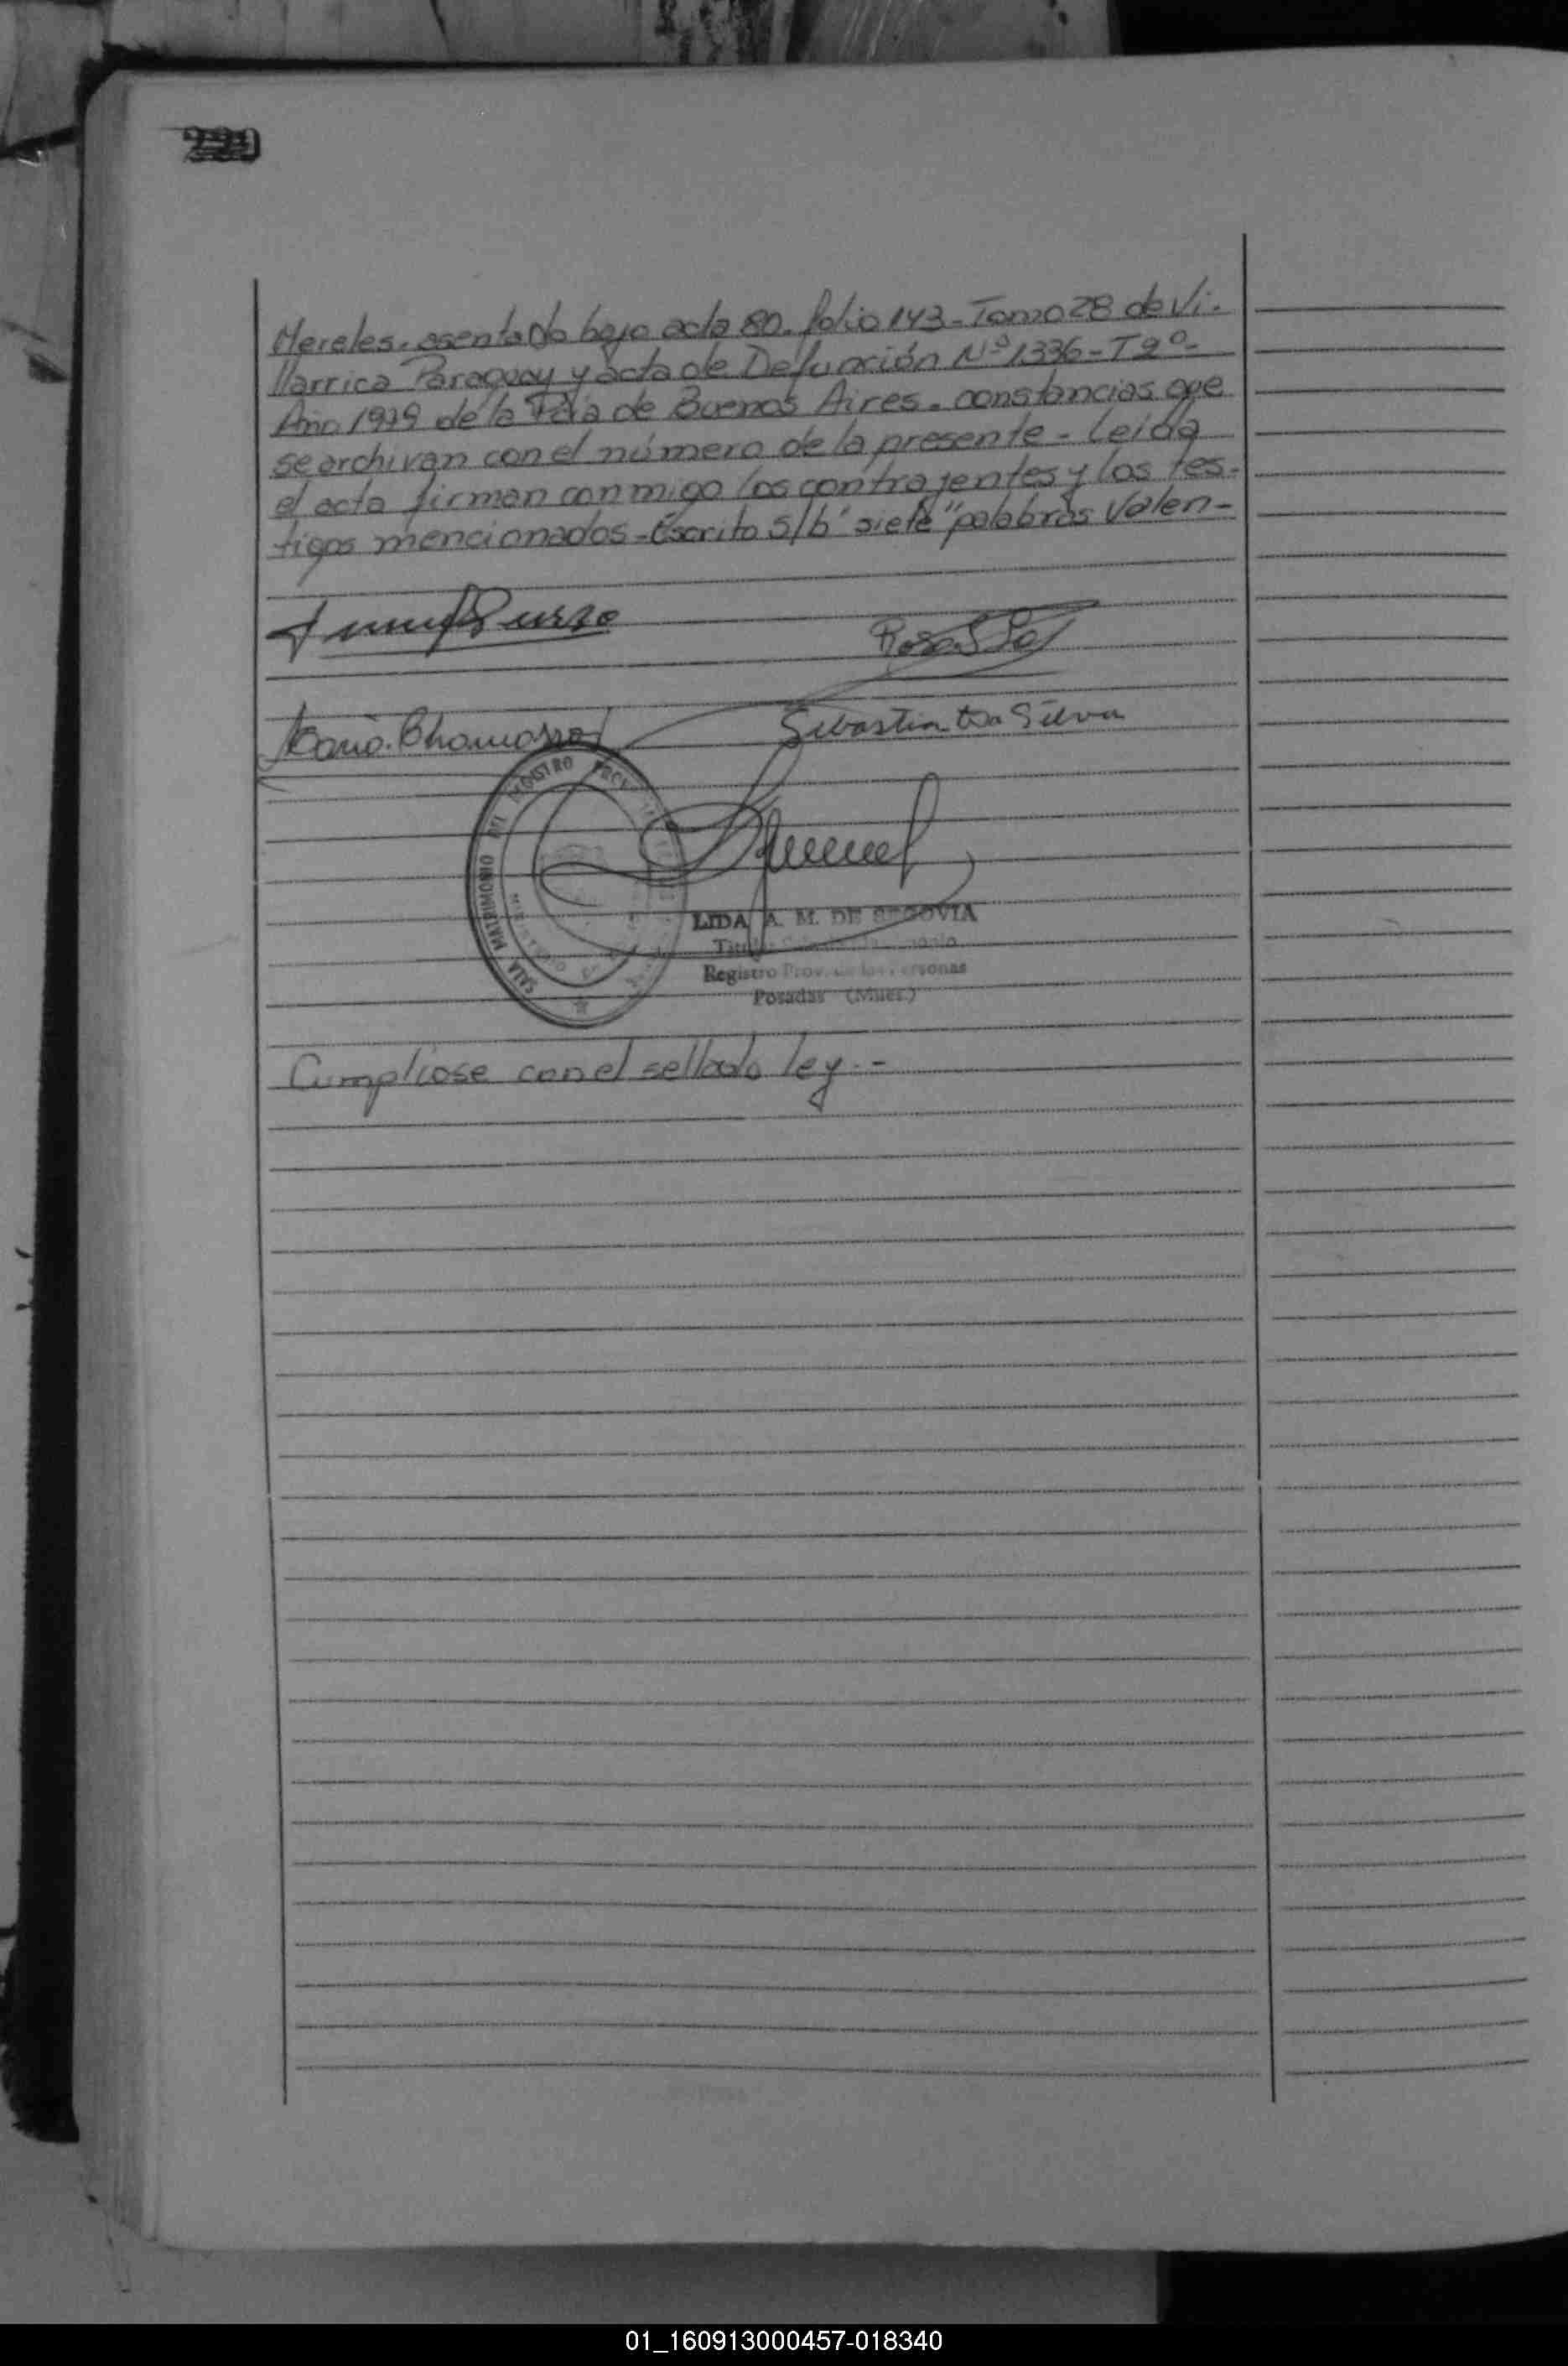 Mereles. asentado bajo acta 80. folio 143 - Tomo 28 de Vi-
llarrica Paraguay y acta de Defunción Nº 1336 - T 2º -
Año 1979 de la Pcia de Buenos Aires. constancias que
se archivan con el número de la presente - leida
el acta firman conmigo los contrayentes y los tes-
tigos mencionados - Escrito S/b "siete" palabras Valen -
Sebastian Da Silva
SALA MATRIMONIO DEL REGISTRO PROV
LIDA A. M. DE SEGOVIA
Registro Prov. de las Personas
Posadas (Mnes.)
Cumpliose con el sellado ley. -
01_160913000457-018340